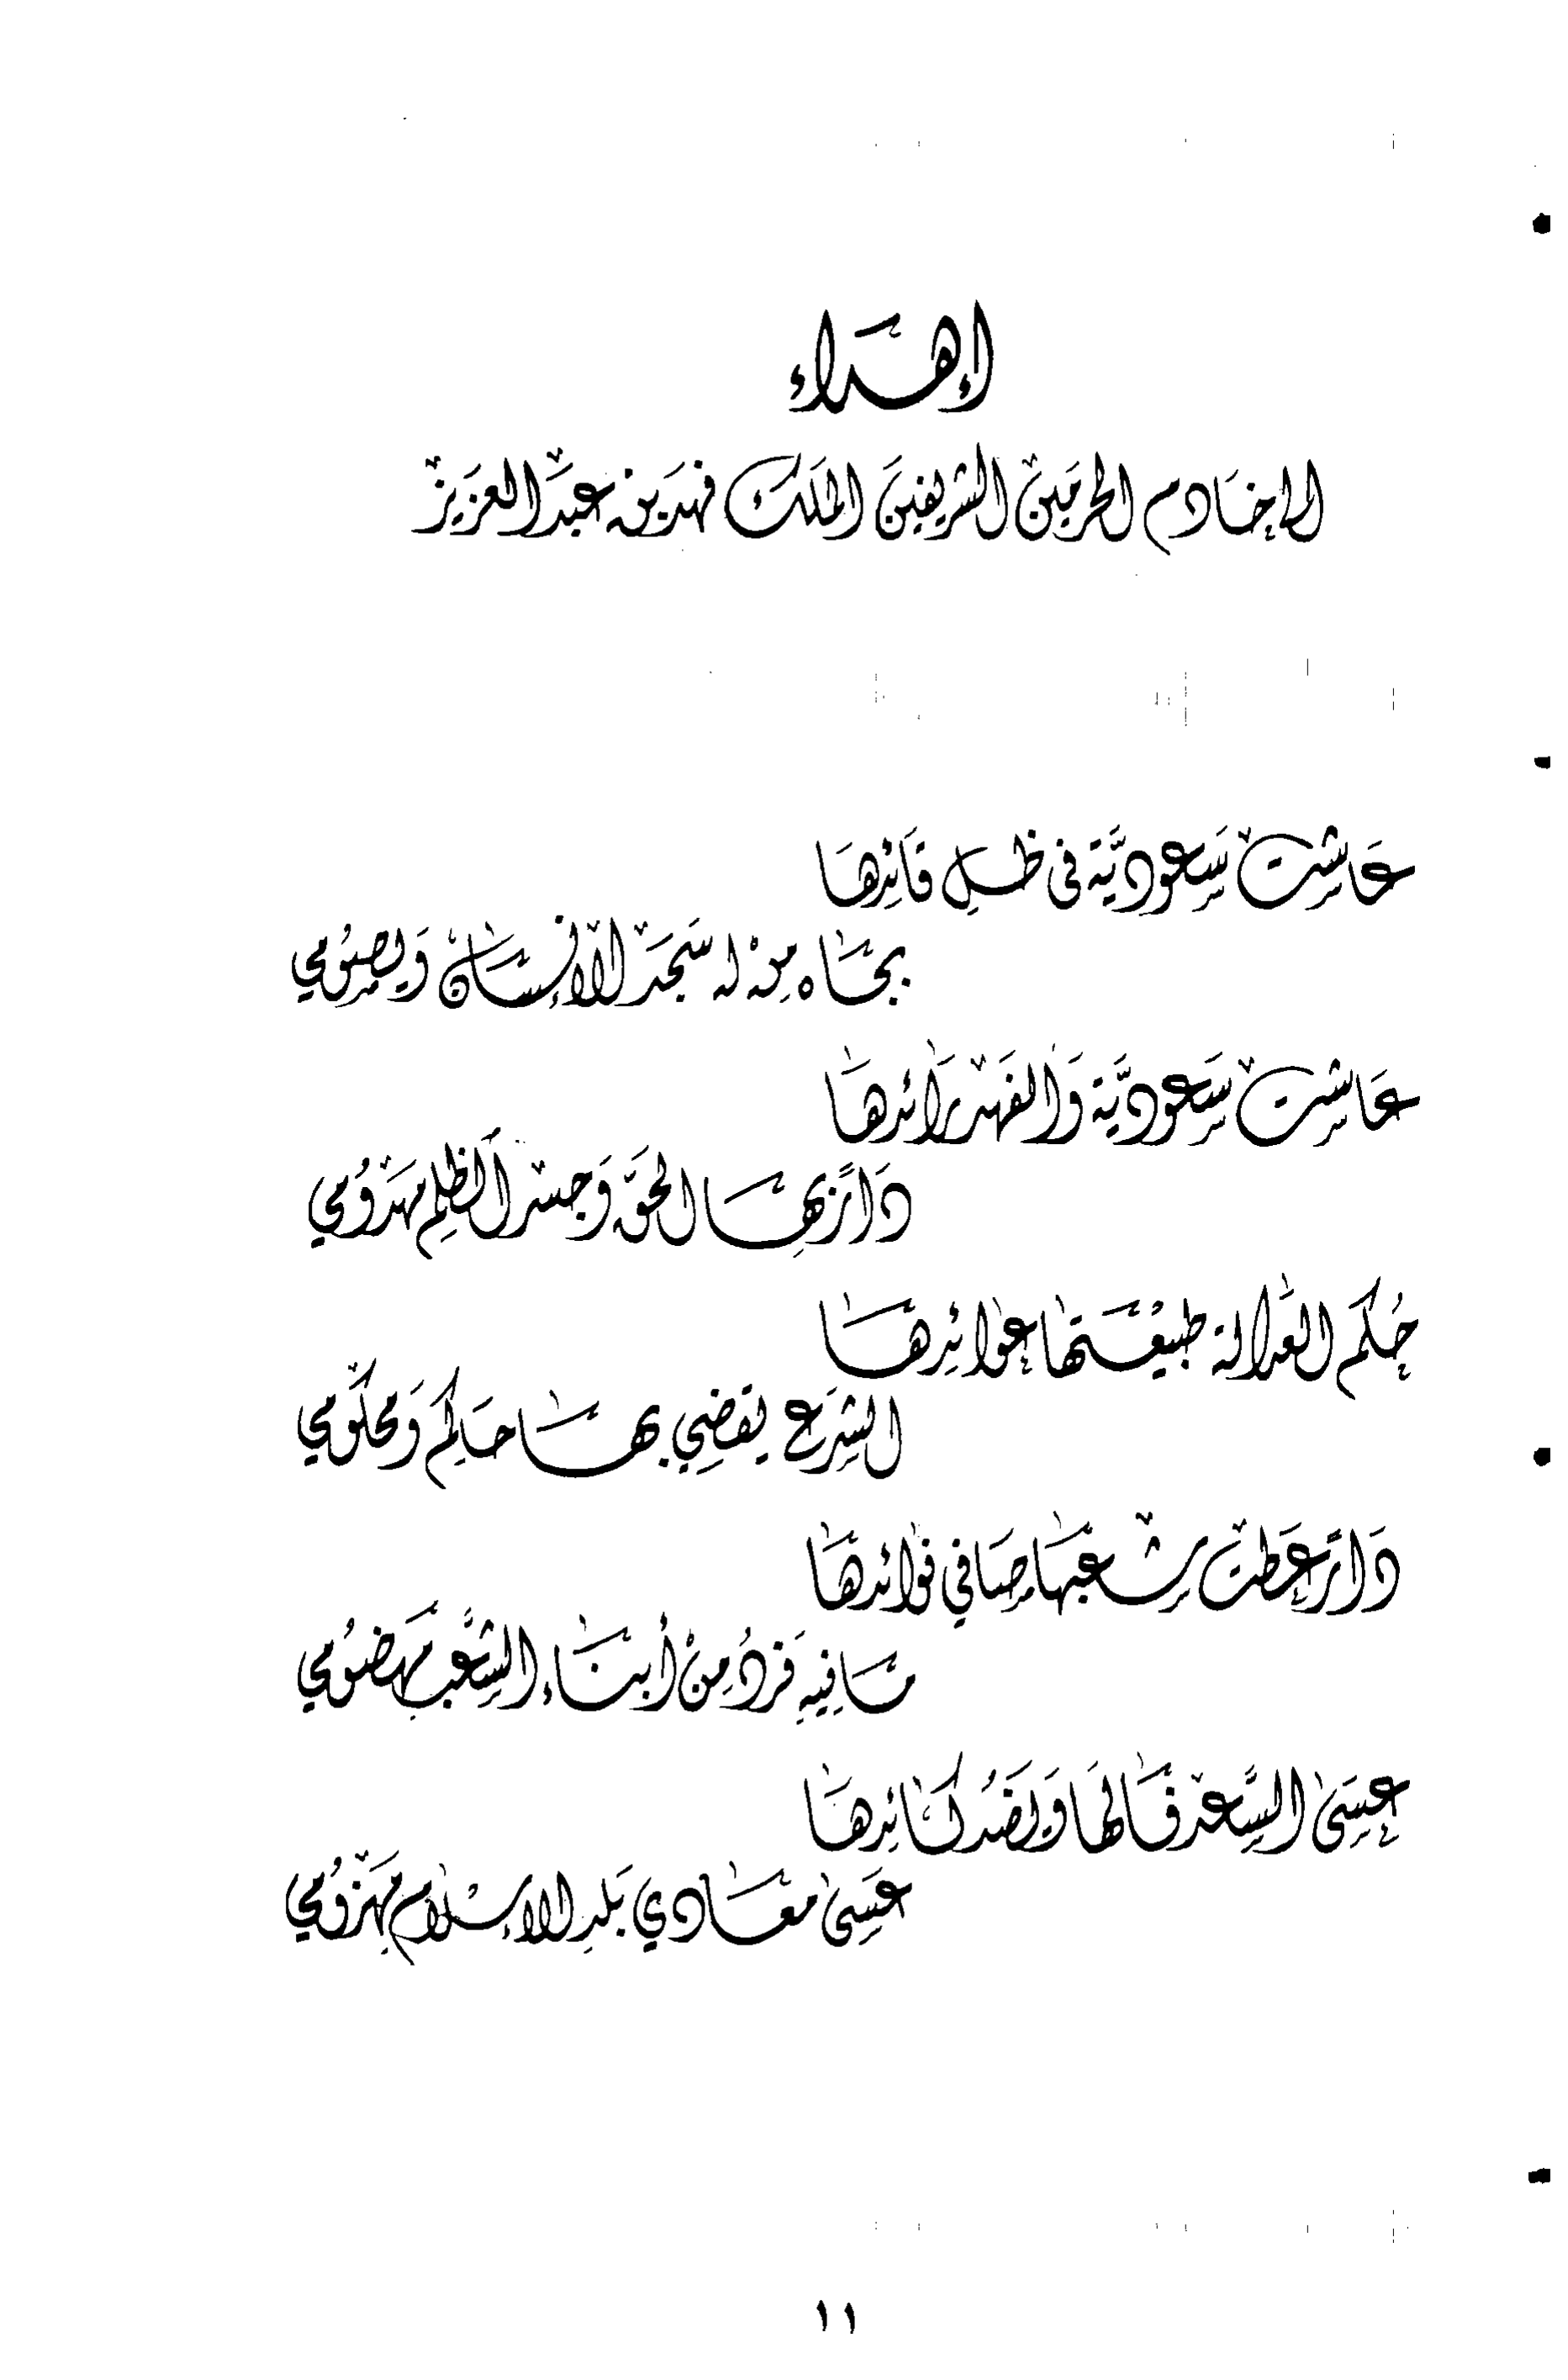 إهداء
إلى خادم الحرمين الشريفين الملك فهد بن عبد العزيز
عاشت سعوديَّة في ظل قائدها
بجاه من له سجد الإنسان ويصومي
عاشت سعوديَّة والفهد رائدها
دارٍ بها الحق وجسر الظلم مهدومي
حكم العدالة طبيعتها عوايدها
الشرع يقضي بها حاكم ومحكومي
دارٍ عطت شعبها صافي فوائدها
ما فيه فردٍ من أبناء الشعب مهضومي
عسى السَّعد فالها ويضد كائدها
عسى معادي بلد الإسلام مهزومي
١١